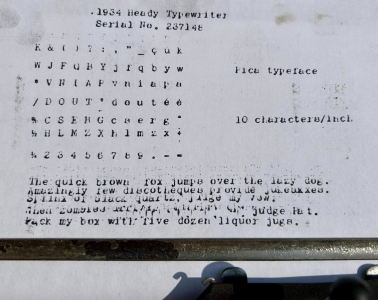 .1934 Heady Typewriter
Serial No. 237148
K & ( ) ? : , " _ ç u k
W J F Q B Y j f q b y w
Pica typeface
° V N I A P v n i a p a
/ D O U T ' d o u t é è
% C S E R G c s e r g
10 characters/inch
½ H L M Z X h l m z x
¾ 2 3 4 5 6 7 8 9 . - =
The quick brown fox jumps over the lazy dog.
Amazingly few discotheques provide jukeboxes.
of black quartz, my vow.
When zombies judge Pat.
Pack my box with five dozen liquor jugs.